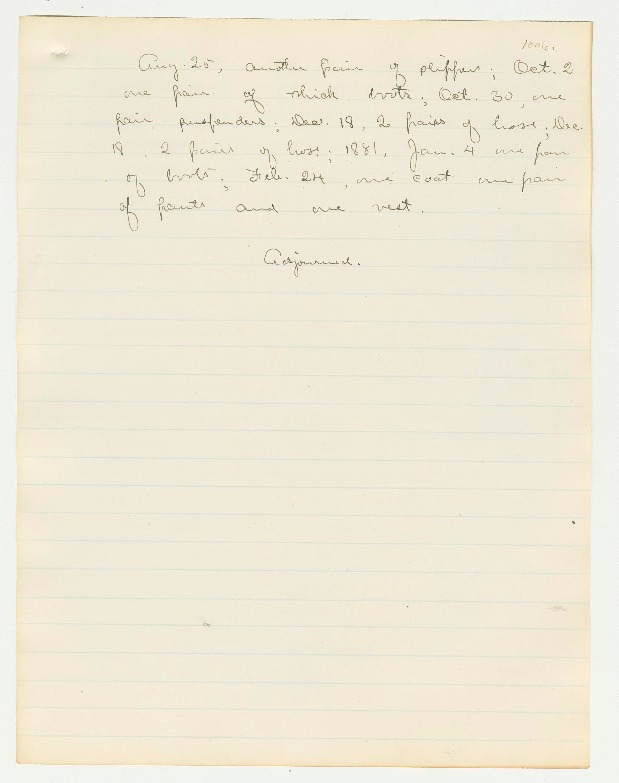 Aug. 25, another pair of slippers; Oct. 2
one pair of thick boots; Oct. 30, one
pair suspenders; Dec. 18, 2 pairs of hose; Dec.
18, 2 pairs of hose; 1881, Jan. 4 one pair
of boots; Feb. 24, one coat one pair
of pants and one vest.
Adjourned.